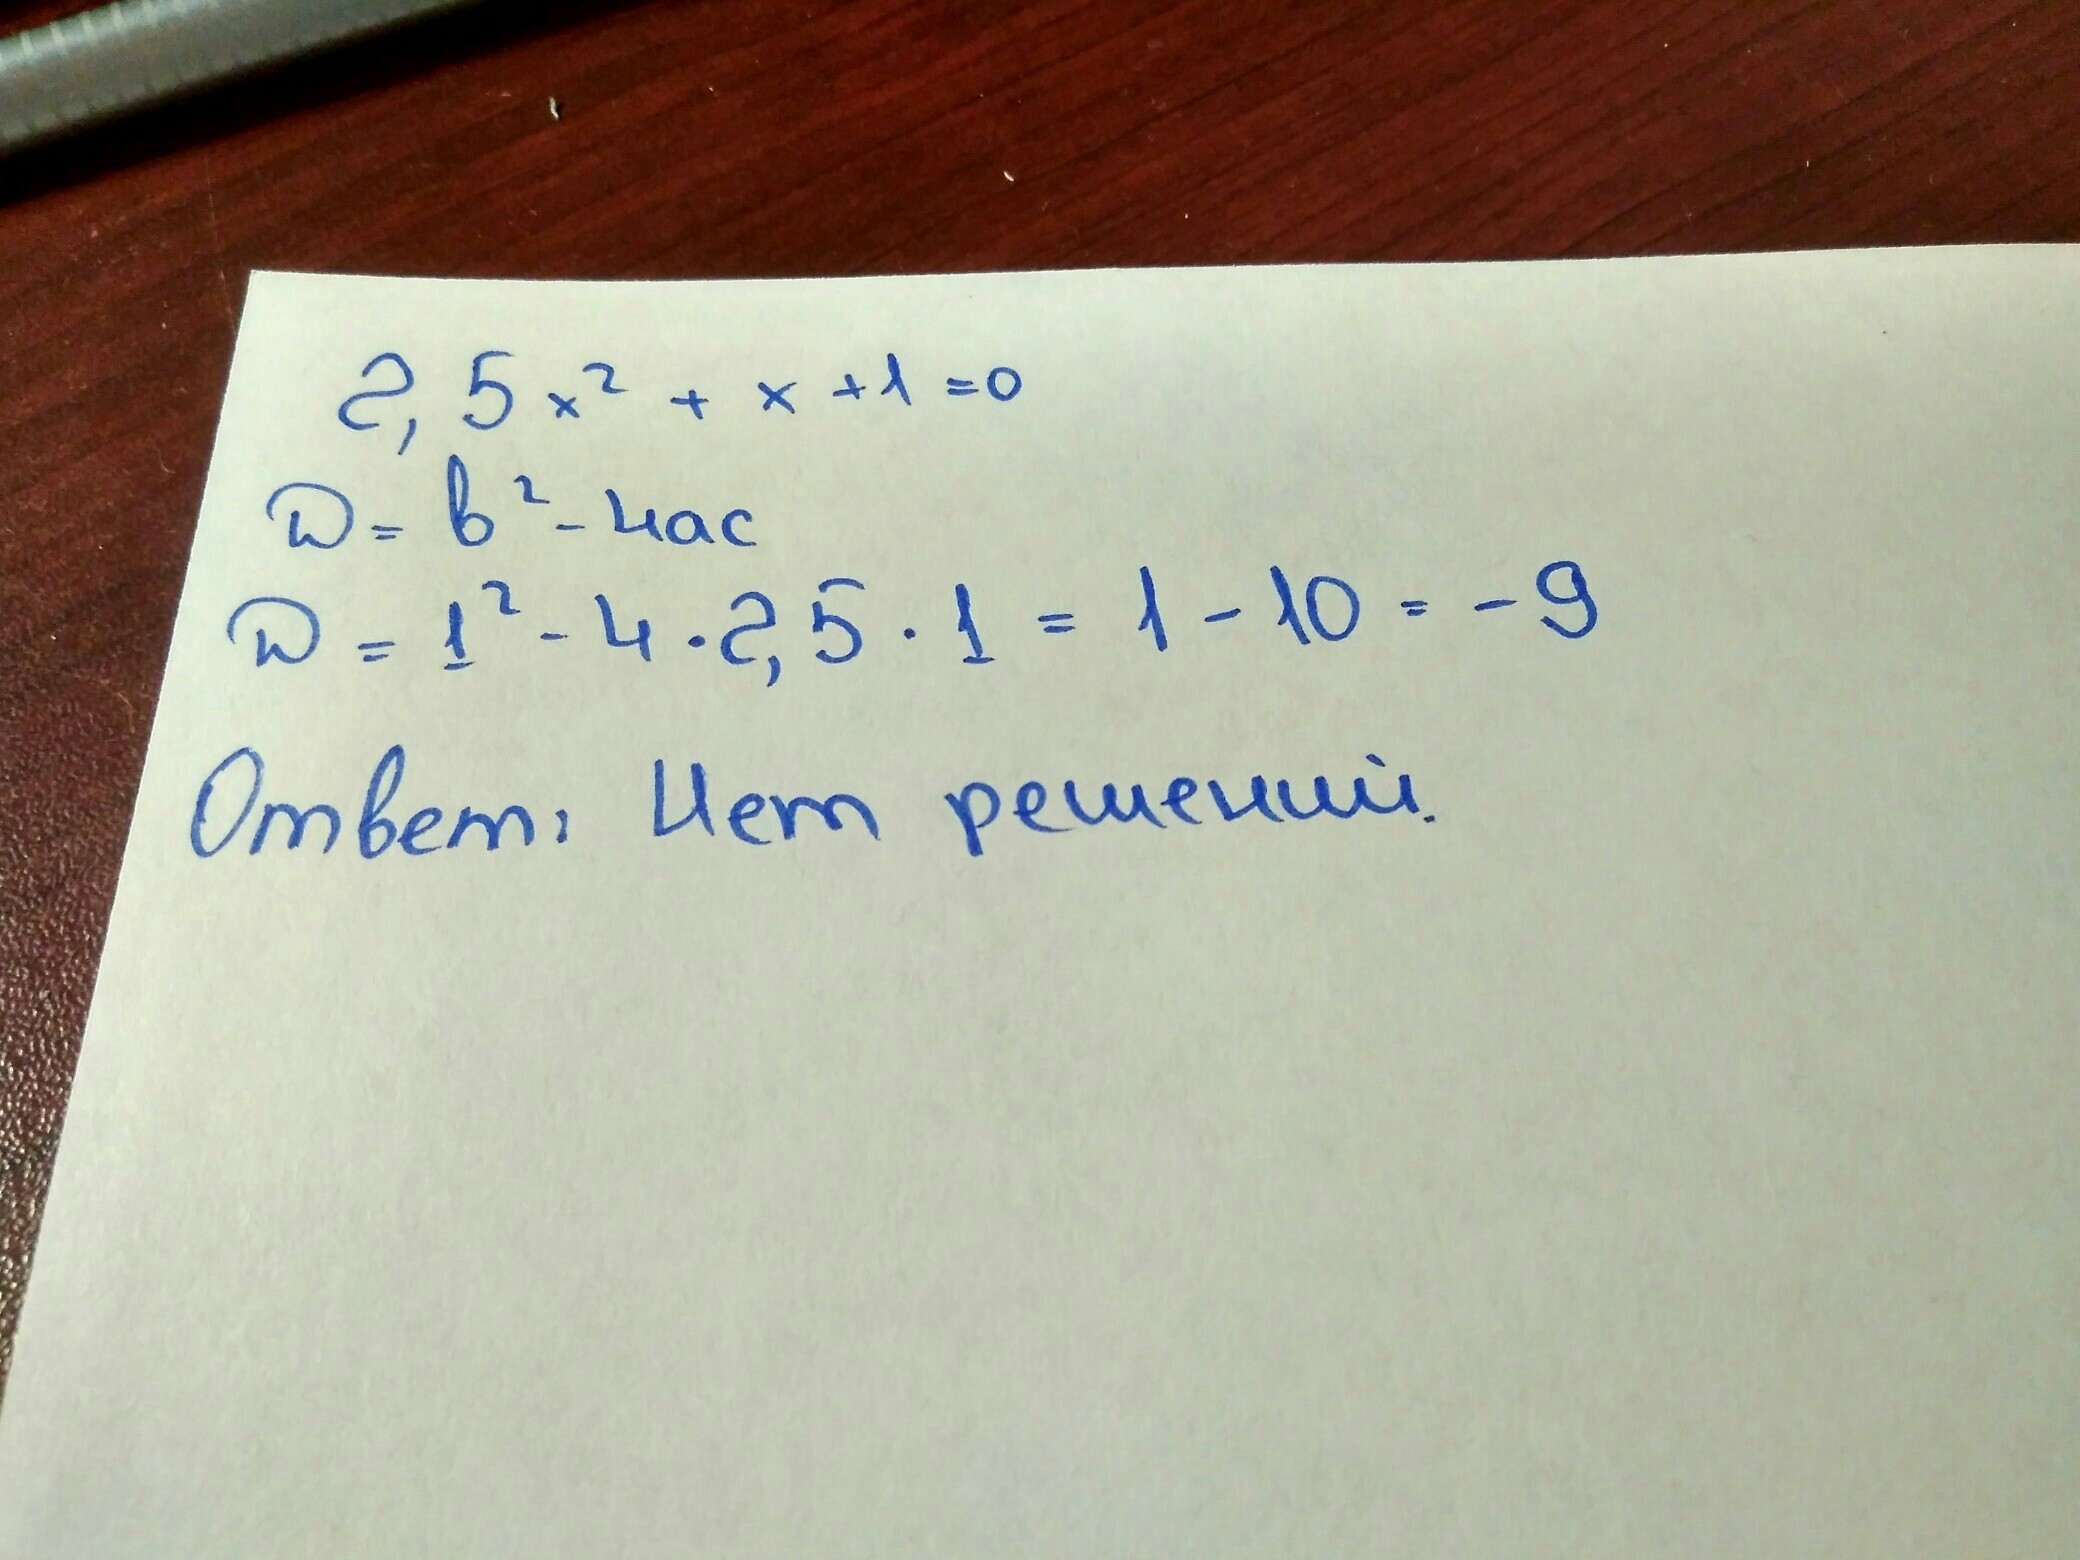 2,5x² + x + 1 = 0
D = b² - 4ac
D = 1² - 4 · 2,5 · 1 = 1 - 10 = -9
Ответ: Нет решений.